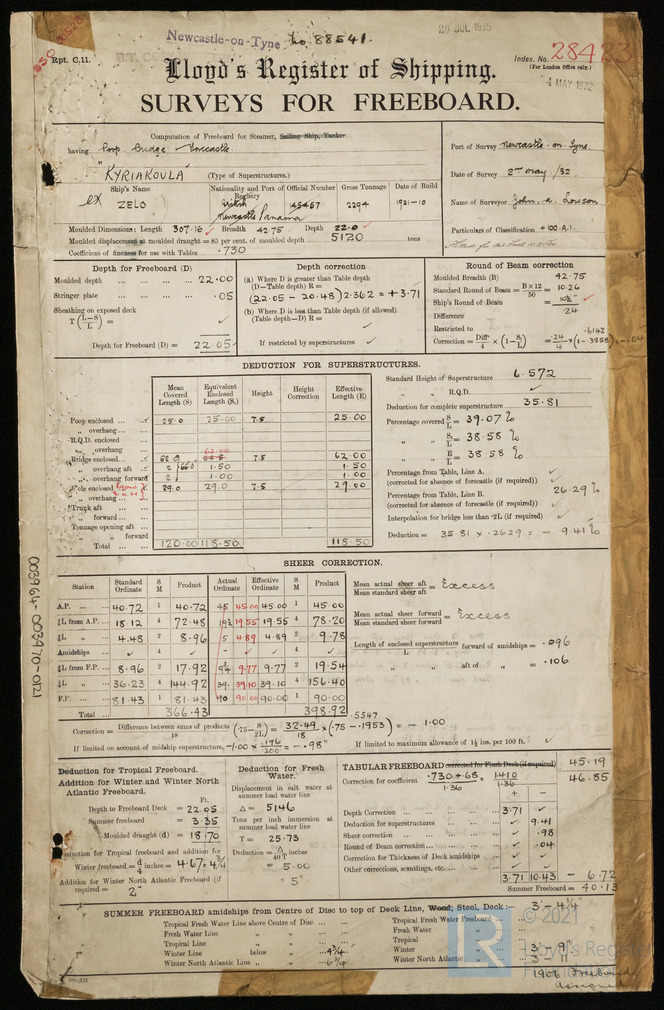 Newcastle-on-Tyne No. 88541.
Rpt. C.11.
Index. No. 28423
(For London Office only.)
4 MAY 1932
Lloyd's Register of Shipping.
SURVEYS FOR FREEBOARD.
Computation of Freeboard for Steamer, Sailing Ship, Tanker
having Poop Bridge Forecastle
(Type of Superstructures.)
"KYRIAKOULA"
ex ZELO
Ship's Name
Nationality and Port of Registry Official Number Gross Tonnage Date of Build
British
Newcastle Panama 45457 2294 1921-10
Moulded Dimensions: Length 307.16 Breadth 42.75 Depth 22.0
Moulded displacement at moulded draught = 85 per cent. of moulded depth 5120 tons
Coefficient of fineness for use with Tables .730
Port of Survey Newcastle-on-Tyne.
Date of Survey 2nd May /32
Name of Surveyor John A. Lowson
Particulars of Classification +100.A.1.
Depth for Freeboard (D)
Moulded depth ... 22.00
Stringer plate ... .05
Sheathing on exposed deck
T (L-S/L) = ✓
Depth for Freeboard (D) = 22.05
Depth correction
(a) Where D is greater than Table depth
(D—Table depth) R =
(22.05 - 20.48) 2.362 = + 3.71
(b) Where D is less than Table depth (if allowed)
(Table depth—D) R = ✓
If restricted by superstructures ✓
Round of Beam correction
Moulded Breadth (B) 42.75
Standard Round of Beam = B×12/50 = 10.26
Ship's Round of Beam = 10½"
Difference .24
Restricted to
Correction = Diff/4 × (1 - S₁/L) = .24/4 × (1-.3858) = -.04
.6142
DEDUCTION FOR SUPERSTRUCTURES.
Mean Covered Length (S) Equivalent Enclosed Length (S₁) Height Height Correction Effective Length (E)
Poop enclosed ... 25.0 25.00 7.5 25.00
„ overhang ...
R.Q.D. enclosed
„ overhang
Bridge enclosed... 62.0 62.00 7.5 62.00
„ overhang aft 2 1.50 1.50
„ overhang forward 2 1.00 1.00
F'cle enclosed 29.0 29.0 7.5 29.00
„ overhang ...
Trunk aft
„ forward ...
Tonnage opening aft ...
„ „ forward
Total ... 120.00 118.50 118.50
Standard Height of Superstructure 6.572
„ „ R.Q.D. ✓
Deduction for complete superstructure 35.81
Percentage covered S/L = 39.07%
„ „ S₁/L = 38.58%
„ „ E/L = 38.58%
Percentage from Table, Line A.
(corrected for absence of forecastle (if required)) ✓
Percentage from Table, Line B.
(corrected for absence of forecastle (if required)) 26.29%
Interpolation for bridge less than .2L (if required) ✓
Deduction = 35.81 × .2629 = - 9.41%
SHEER CORRECTION.
Station Standard Ordinate S M Product Actual Ordinate Effective Ordinate S M Product
A.P. ... 40.72 1 40.72 45 45.00 45.00 1 45.00
⅙L from A.P. ... 18.12 4 72.48 19½ 19.55 19.55 4 78.20
⅓L „ 4.48 2 8.96 5 4.89 4.89 2 9.78
Amidships ... ✓ 4 ✓ - ✓ ✓ 4 ✓
⅓L from F.P. ... 8.96 2 17.92 9¾ 9.77 9.77 2 19.54
⅙L „ 36.23 4 144.92 39. 39.10 39.10 4 156.40
F.P. ... 81.43 1 81.43 90 90.00 90.00 1 90.00
Total ... 366.43 398.92
Mean actual sheer aft / Mean standard sheer aft = Excess
Mean actual sheer forward / Mean standard sheer forward = Excess
Length of enclosed superstructure / L forward of amidships = .096
„ „ aft of „ = .106
Correction = Difference between sums of products / 18 (.75 - S/2L) = 32.49/18 × (.75 - .1953) = - 1.00
.5547
If limited on account of midship superstructure, -1.00 × .196/.200 = - .98"
If limited to maximum allowance of 1½ ins. per 100 ft. ✓
Deduction for Tropical Freeboard.
Addition for Winter and Winter North Atlantic Freeboard.
Ft.
Depth to Freeboard Deck = 22.05
Summer freeboard = 3.35
Moulded draught (d) = 18.70
Deduction for Tropical freeboard and addition for
Winter freeboard = d/4 inches = 4.67 = 4¾
Addition for Winter North Atlantic Freeboard (if required) = 2"
Deduction for Fresh Water.
Displacement in salt water at summer load water line
Δ = 5146
Tons per inch immersion at summer load water line
T = 25.73
Deduction = Δ/40T inches
= 5.00
= 5"
TABULAR FREEBOARD corrected for Flush Deck (if required) 45.19
Correction for coefficient .730+.68/1.36 = 1410/1.36 46.85
+ -
Depth Correction ... 3.71 ✓
Deduction for superstructures ... ✓ 9.41
Sheer correction ... ✓ .98
Round of Beam correction ... ✓ .04
Correction for Thickness of Deck amidships ... ✓ ✓
Other corrections, scantlings, etc. ... ✓ ✓
3.71 10.43 - 6.72
Summer Freeboard = 40.13
SUMMER FREEBOARD amidships from Centre of Disc to top of Deck Line, Wood, Steel, Deck :— 3'-4¼"
Tropical Fresh Water Line above Centre of Disc ...
Fresh Water Line „ „
Tropical Line „ „
Winter Line below „ 4¾"
Winter North Atlantic Line „ „ 6¾"
Tropical Fresh Water Freeboard
Fresh Water „
Tropical „
Winter „ 3'-9"
Winter North Atlantic „ 3-11
1906 Freeboard
assigned
© 2021
Lloyd's Register